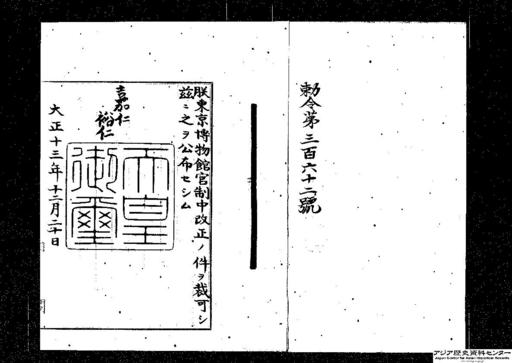 勅令第三百六十二號
朕東京博物館官制中改正ノ件ヲ裁可シ
茲ニ之ヲ公布セシム
嘉仁
裕仁
天皇
御璽
大正十三年十二月二十日
アジア歴史資料センター
Japan Center for Asian Historical Records